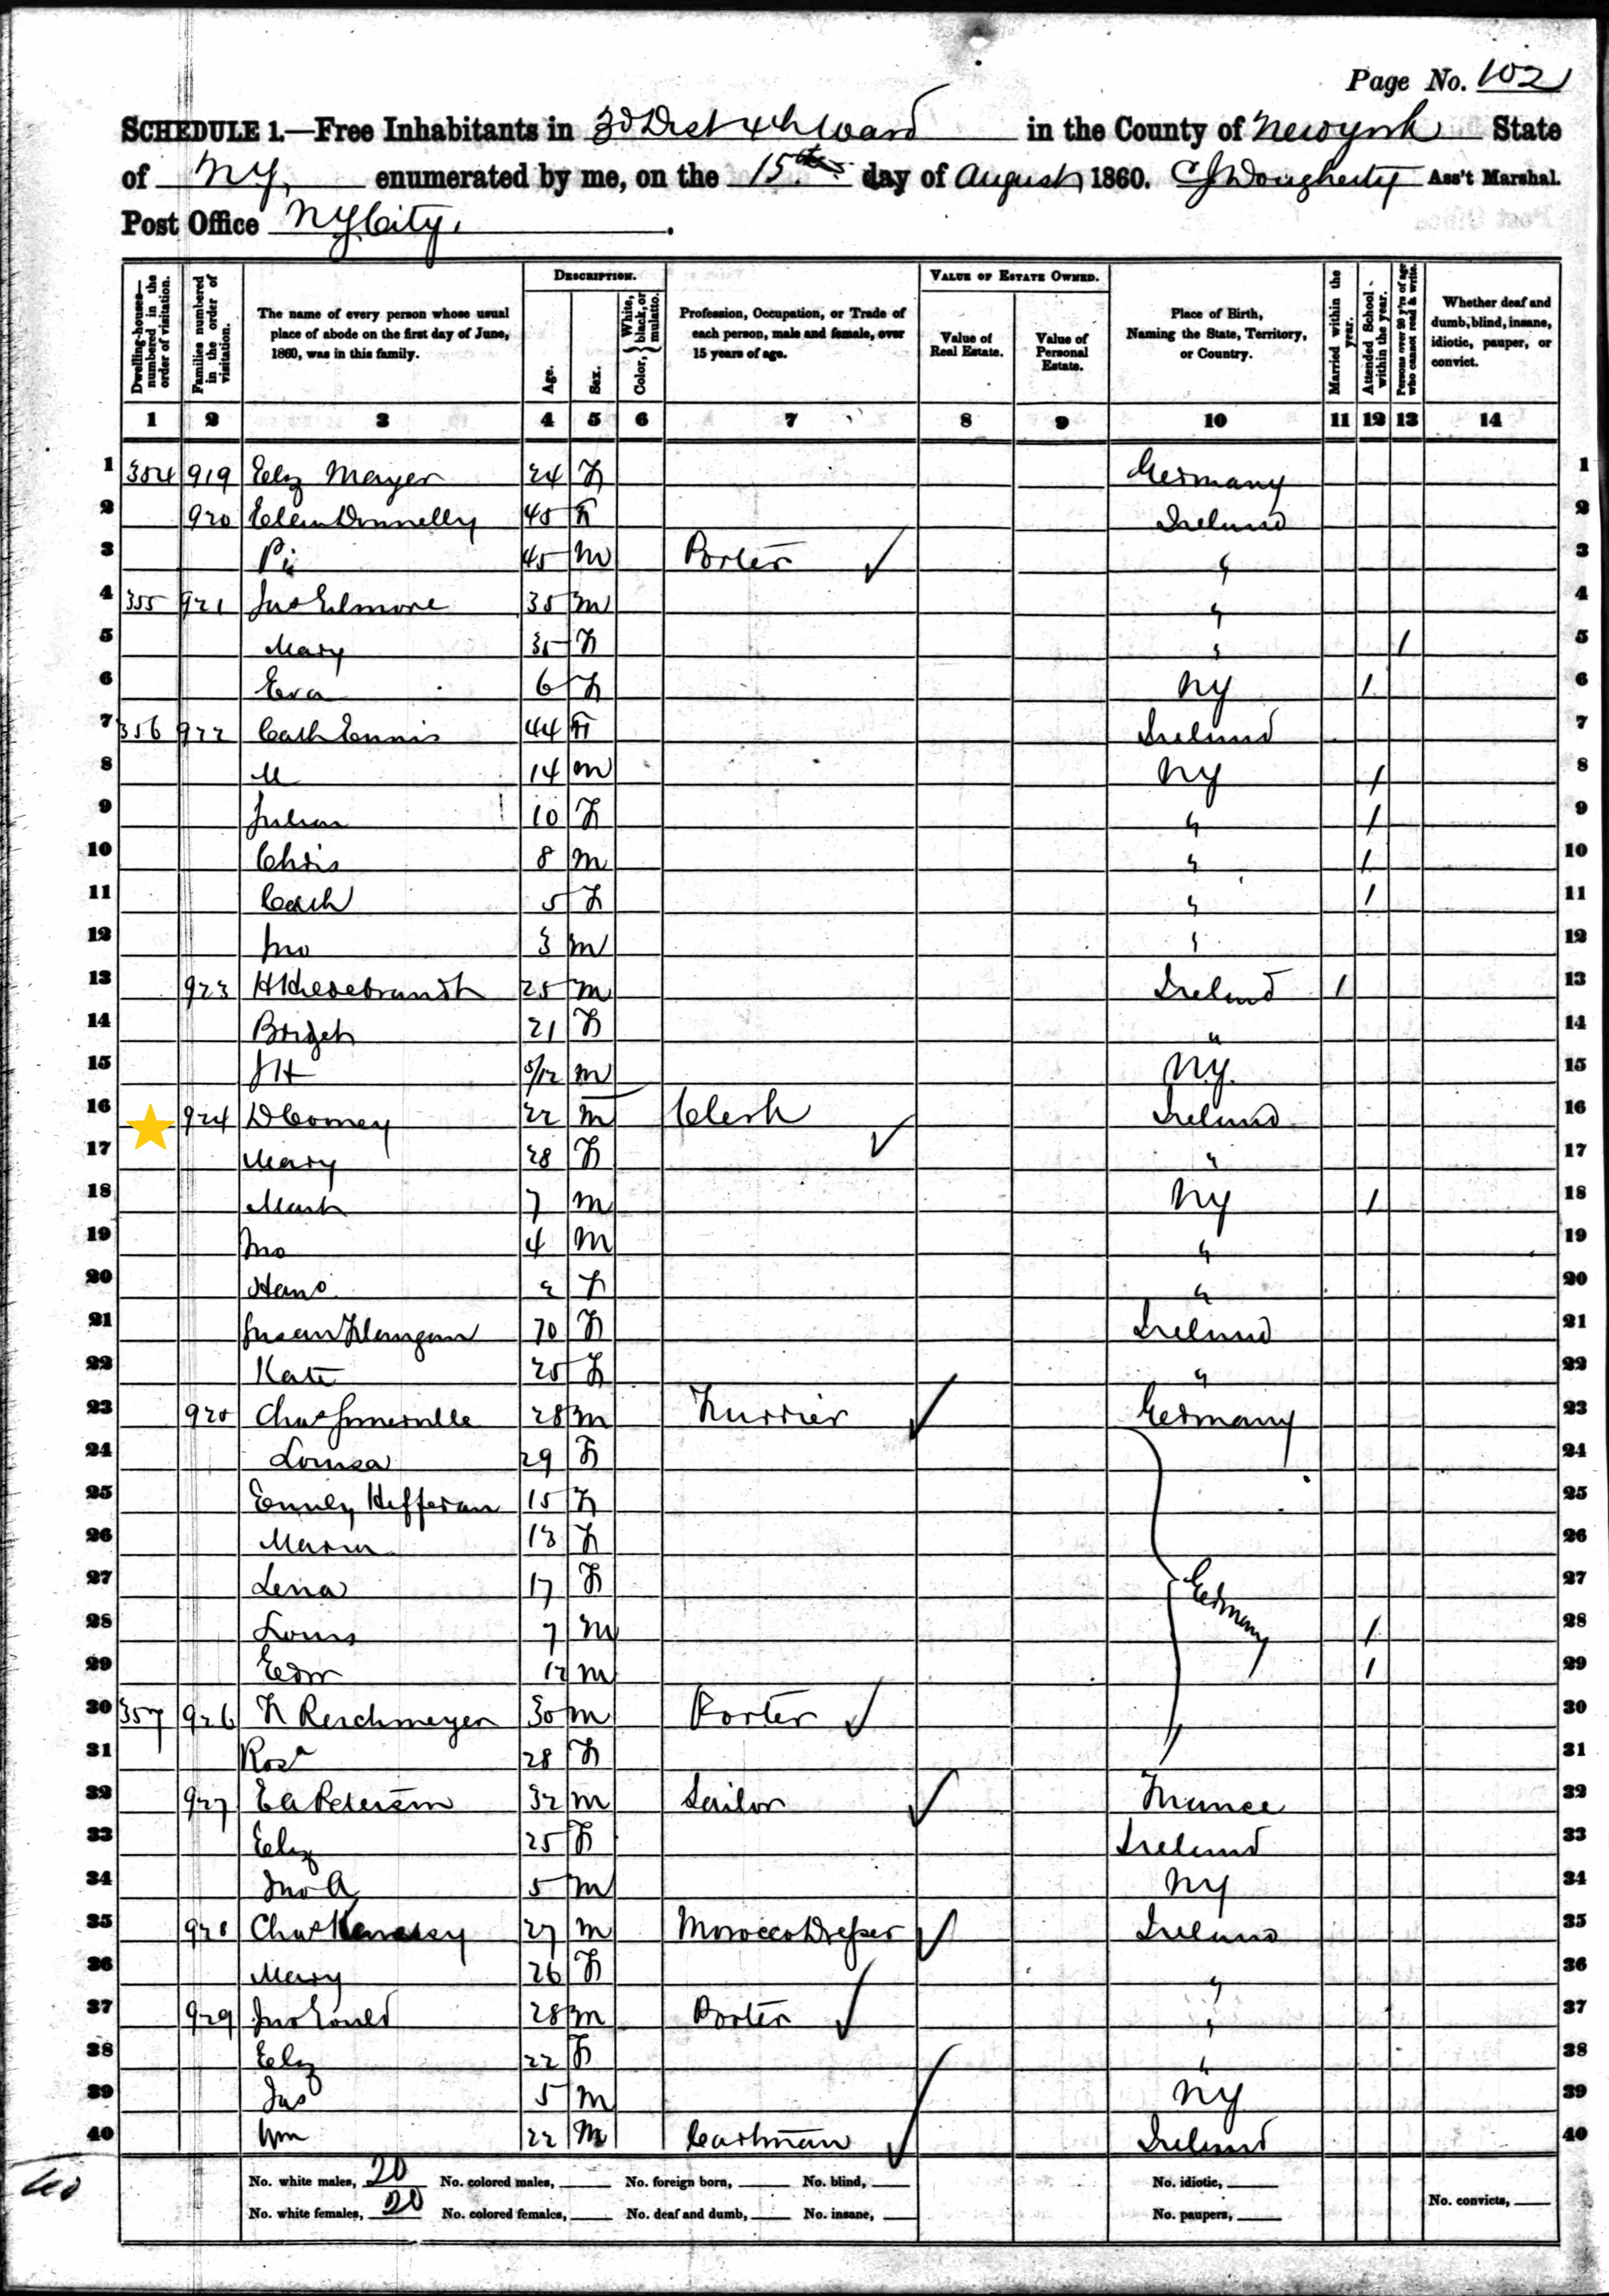 Page No. 102
SCHEDULE 1.—Free Inhabitants in 3d Dist 4th Ward in the County of New York State
of NY, enumerated by me, on the 15th day of August 1860. CJ Dougherty Ass't Marshal.
Post Office NY City.
Dwelling-houses—numbered in the order of visitation.
Families numbered in the order of visitation.
The name of every person whose usual place of abode on the first day of June, 1860, was in this family.
DESCRIPTION.
Age.
Sex.
Color, { White, black, or mulatto.
Profession, Occupation, or Trade of each person, male and female, over 15 years of age.
VALUE OF ESTATE OWNED.
Value of Real Estate.
Value of Personal Estate.
Place of Birth, Naming the State, Territory, or Country.
Married within the year.
Attended School within the year.
Persons over 20 y'rs of age who cannot read & write.
Whether deaf and dumb, blind, insane, idiotic, pauper, or convict.
1 2 3 4 5 6 7 8 9 10 11 12 13 14
1 354 919 Eliz Mayer 24 F Germany 1
2 920 Ellen Donnelly 45 F Ireland 2
3 45 m Porter ✓ " 3
4 355 921 Jas Elmore 35 m " 4
5 Mary 35 F " / 5
6 Eva 6 F NY / 6
7 356 922 Cath Ennis 44 F Ireland 7
8 M 14 m NY / 8
9 Julia 10 F " / 9
10 Chris 8 m " / 10
11 Cath 5 F " / 11
12 Jno 3 m " 12
13 923 H Hildebrandt 25 m Ireland / 13
14 Bridget 21 F " 14
15 JH 5/12 m N.Y. 15
16 924 D Comey 22 m Clerk ✓ Ireland 16
17 Mary 28 F " 17
18 Mark 7 m NY / 18
19 Jno 4 m " 19
20 Hano 2 F " 20
21 Susan Flangan 70 F Ireland 21
22 Kate 25 F " 22
23 925 Chas Somerville 28 m Furrier ✓ Germany 23
24 Louisa 29 F 24
25 Emily Hefferan 15 F 25
26 Maria 13 F 26
27 Lena 17 F Germany 27
28 Louis 7 m / 28
29 Edw 12 m / 29
30 357 926 F Reichmeyer 30 m Porter ✓ 30
31 Rosa 28 F 31
32 927 E A Peterson 32 m Sailor ✓ France 32
33 Eliz 25 F Ireland 33
34 Jno A 5 m NY 34
35 928 Chas 27 m Morocco Dresser ✓ Ireland 35
36 Mary 26 F " 36
37 929 Jno Gould 28 m Porter ✓ " 37
38 Eliz 22 F " 38
39 Jas 5 m NY 39
40 Wm 22 M Cartman ✓ Ireland 40
No. white males, 20 No. colored males, No. foreign born, No. blind, No. idiotic,
No. white females, 20 No. colored females, No. deaf and dumb, No. insane, No. paupers, No. convicts,